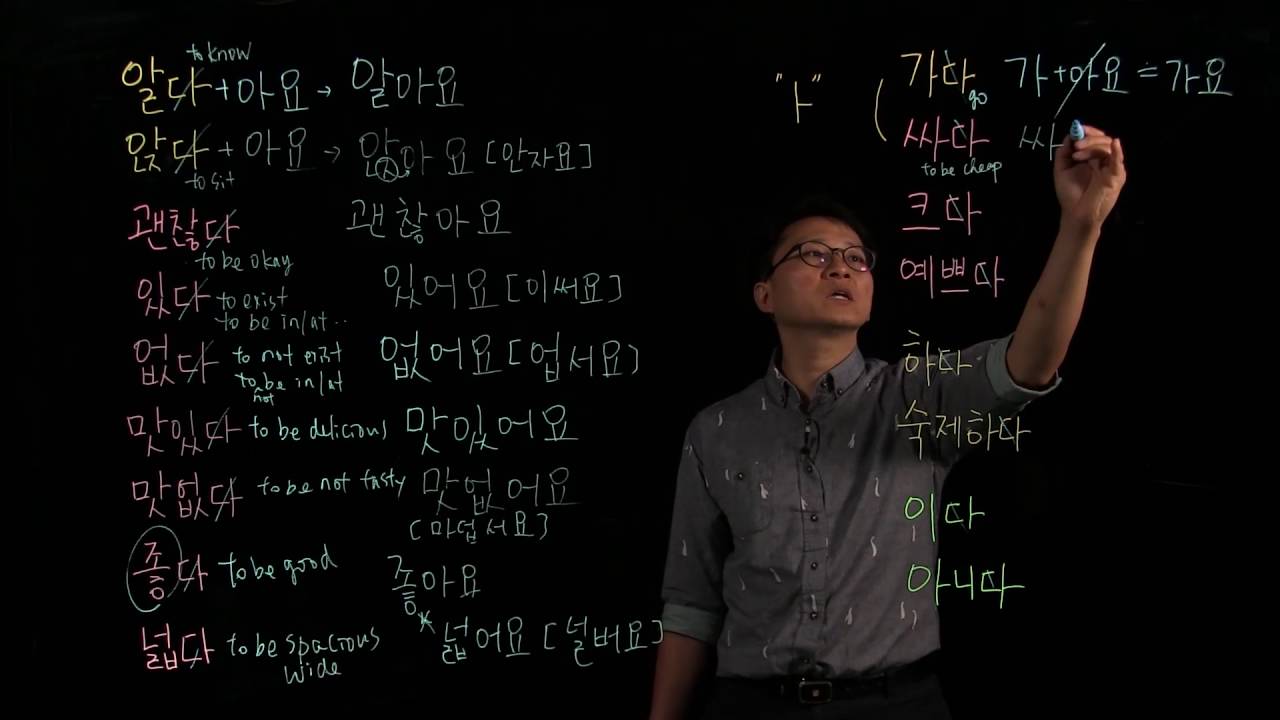 to know
알다+아요→ 알아요
앉다+아요→ 앉아요 [안자요]
to sit
괜찮다 괜찮아요
to be okay
있다 to exist 있어요 [이써요]
to be in/at..
없다 to not exist 없어요 [업서요]
to be in/at
not
맛있다 to be delicious 맛있어요
맛없다 to be not tasty 맛없어요
[마덥서요]
좋다 to be good 좋아요
넓다 to be spacious * 넓어요 [널버요]
wide
"ㅏ" ( 가다 가+아요=가요
go
싸다 싸
to be cheap
크다
예쁘다
하다
숙제하다
이다
아니다